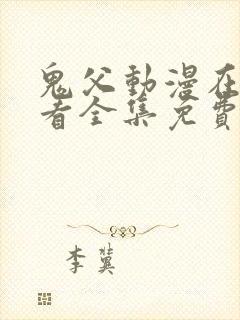 鬼父動漫在
看全集免費
李冀